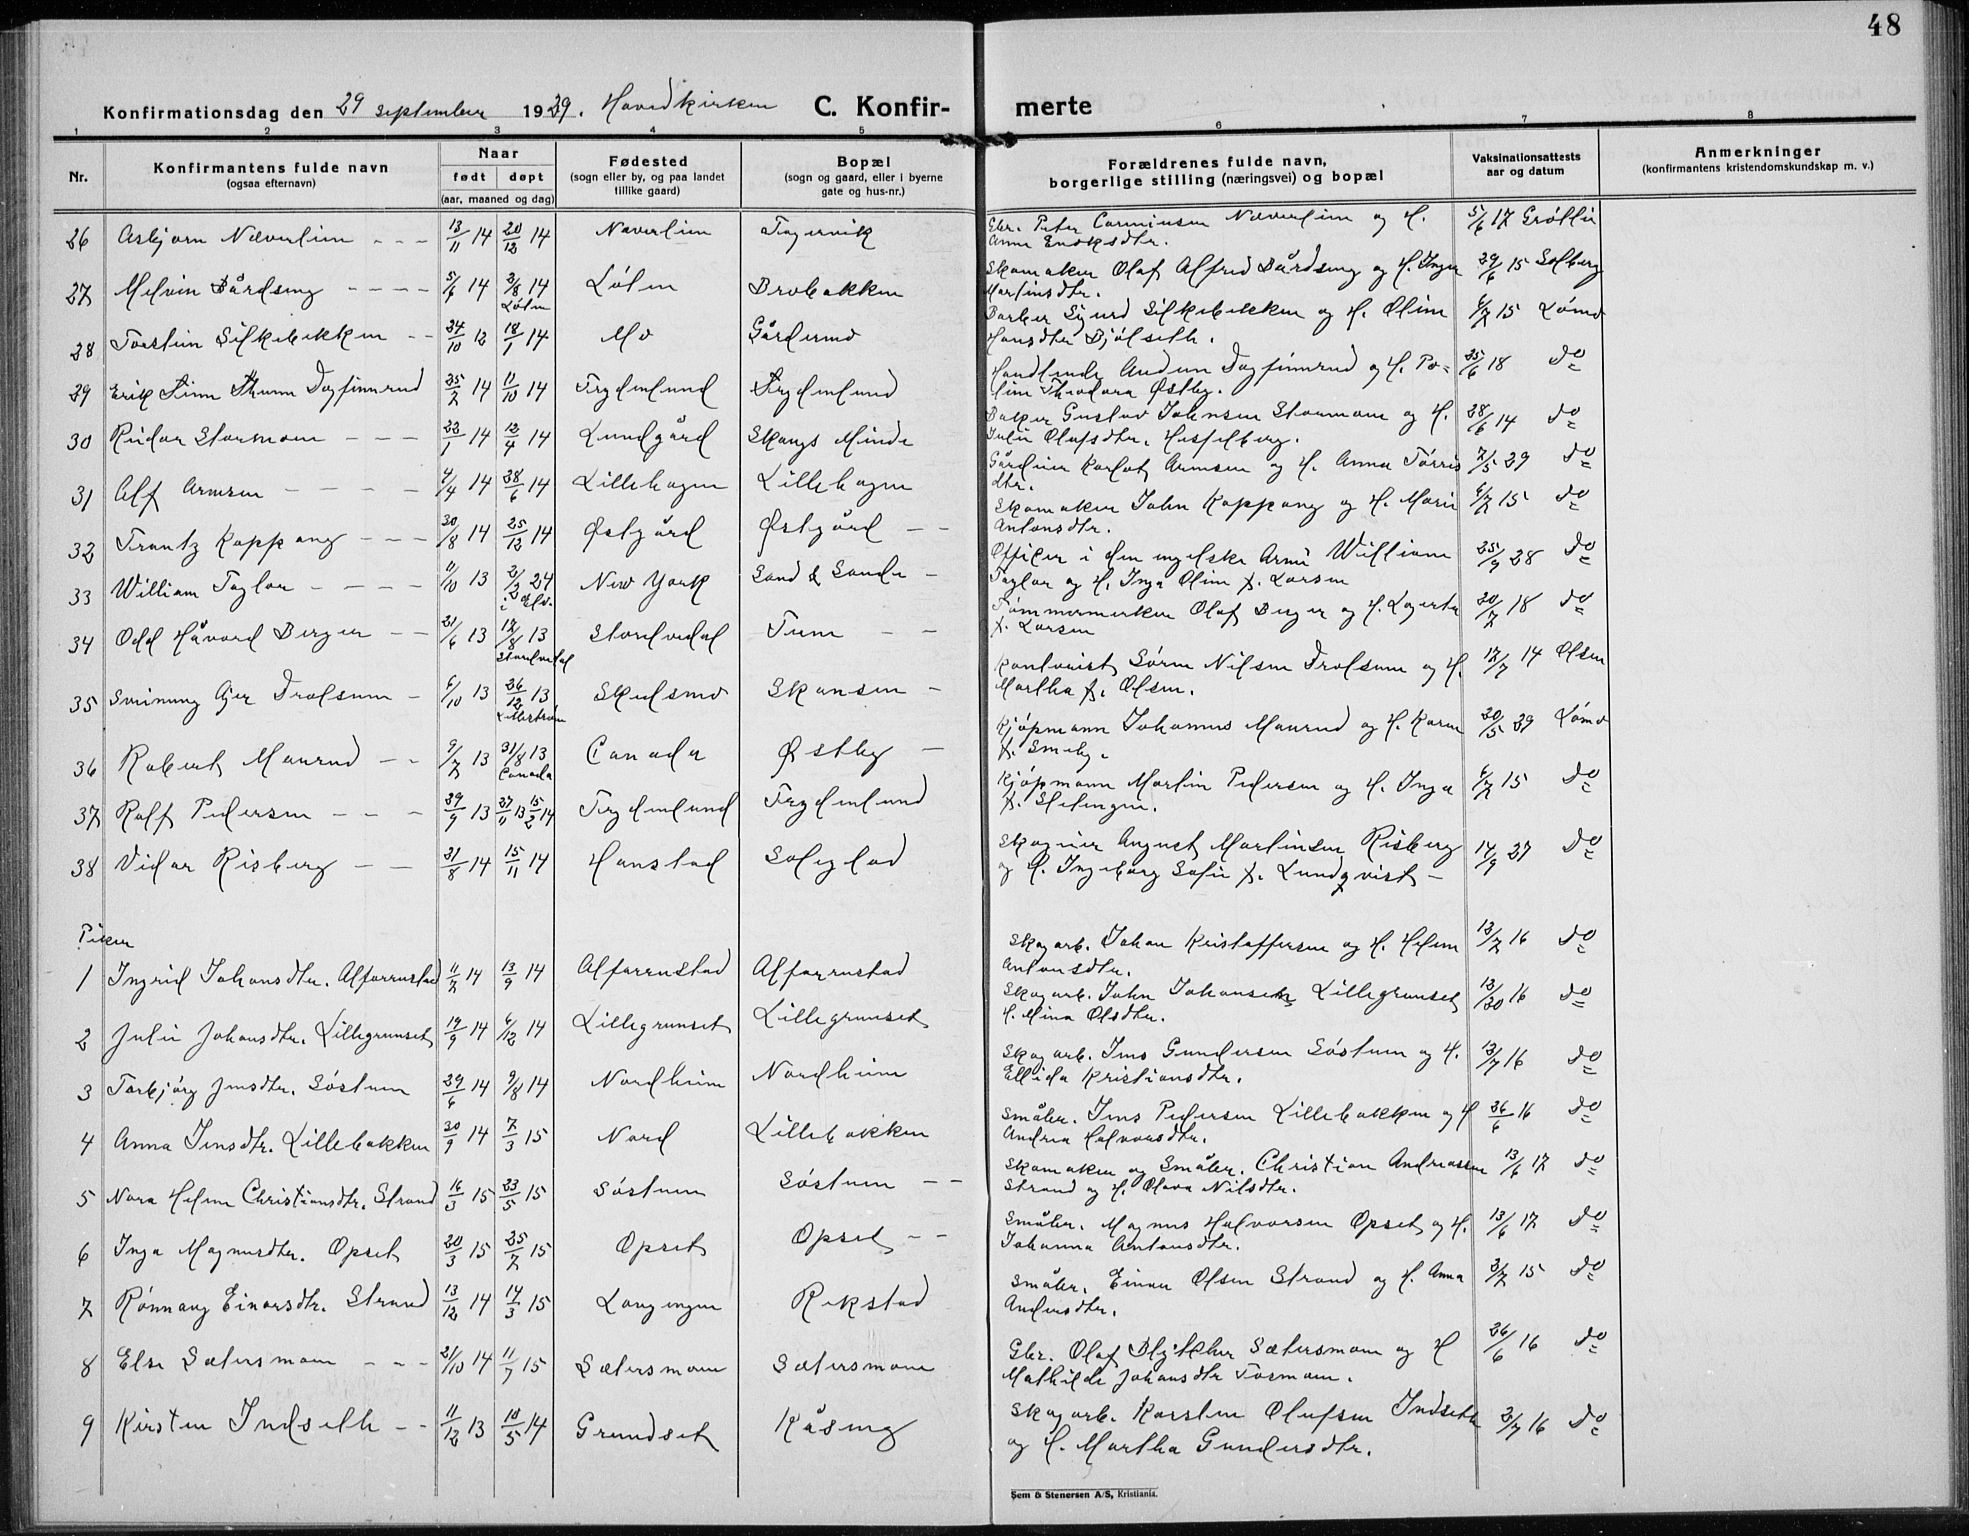 48
Konfirmationsdag den 29 september 1929. Hovedkirken C. Konfir-merte
1 2 3 4 5 6 7 8
Nr.
Konfirmantens fulde navn
(ogsaa efternavn)
Naar
født døpt
(aar, maaned og dag)
Fødested
(sogn eller by, og paa landet
tillike gaard)
Bopæl
(sogn og gaard, eller i byerne
gate og hus-nr.)
Forældrenes fulde navn,
borgerlige stilling (næringsvei) og bopæl
Vaksinationsattests
aar og datum
Anmerkninger
(konfirmantens kristendomskundskap m. v.)
26 Asbjørn Næverlien - - - 13/11 14 20/12 14 Næverlien Fagervik Gbr. Peter Næverlien og H. 5/6 17
Anne Enoksdtr.
27 Melvin Bårdseng - - - - 5/6 14 2/8 14 Løten Brobakken Skomaker Olaf Alfred Bårdseng og H. Inga 29/6 15 Solberg
Løten Martinsdtr.
28 Torstein Silkebekken - - 24/10 12 18/1 14 Mo Gårdermo Barber Sigurd Silkebekken og H. Oline 6/7 15 Lømo
Hansdtr Bjølseth.
29 Erik Finn Thunn Dagfinnrud 25/7 14 11/10 14 Frydenlund Frydenlund Handlende Audun Dagfinnrud og H. Po= 25/6 18 do
line Theodora Østby.
30 Reidar Stormoen - - - 22/1 14 12/4 14 Lundgård Skaugs Minde Baker Gustav Johnsen Stormoen og H. 28/6 14 do
Julie Olufsdtr. Hesselberg.
31 Alf Arnesen - - - - 4/4 14 28/6 14 Lillehagen Lillehagen Gårdeier Karlof Arnesen og H. Anna Tørris 7/5 29 do
dtr.
32 Frantz Koppang - - - 20/8 14 25/12 14 Østgård Østgård - - Skomaker John Koppang og H. Marie 6/7 15 do
Antonsdtr.
33 William Taylor - - - - 11/10 13 2/3 24 New York Sand & Sande - Officer i den engelske Armé William 25/9 28 do
i Elv. Taylor og H. Inga Oline f. Larsen
34 Odd Håvard Berger - - 21/6 13 17/8 13 Stordvedal Tune - - Tømmermerker Olaf Berger og H. Lagerta 20/7 18 do
f. Larsen
35 Sveinung Gjer Trolsum - 6/10 13 26/12 13 Skedsmo Skansen - Kontorist Søren Nilsen Trolsum og H. 17/7 14 Olsen
Lillestrøm Martha f. Olsen.
36 Robert Maurud - - 9/7 13 31/8 13 Canada Østby - Kjøpmann Johannes Maurud og H. Karen 20/5 29 Lømo
Canada f. Smeby.
37 Rolf Pedersen - - - 29/9 13 27/11 13 15/2 14 Frydenlund Frydenlund Kjøpmann Martin Pedersen og H. Inga 6/7 15 do
38 Vidar Risberg - - 31/8 14 15/11 14 Hanstad Soleglad Skogeier August Martinsen Risberg 14/9 27 do
og H. Ingeborg Sofie f. Lundqvist -
Piker
1 Ingrid Johansdtr. Alfarrustad 11/7 14 13/9 14 Alfarrustad Alfarrustad Skogarb. Johan Kristoffersen og H. Helene 13/7 16 do
Antonsdtr.
2 Julie Johansdtr. Lillegrunset 19/9 14 6/12 14 Lillegrunset Lillegrunset Skogarb. John Johansen Lillegrunset 13/20 16 do
H. Mina Olsdtr.
3 Torbjørg Jensdtr. Søstuen 29/6 14 9/8 14 Nordheim Nordheim Skogarb. Jens Gundersen Søstuen og H. 13/7 16 do
Ellida Kristiansdtr.
4 Anna Jensdtr. Lillebakken 20/9 14 7/3 15 Nord Lillebakken Småbr. Jens Pedersen Lillebakken og H 26/6 16 do
Andrea Halvorsdtr.
5 Nora Helene Christiansdtr. Strand 16/3 15 23/5 15 Søstuen Søstuen - - Skomaker og Småbr. Christian Andreassen 13/6 17 do
Strand og H. Olava Nilsdtr.
6 Inga Magnusdtr. Opset 20/3 15 25/7 15 Opset Opset - - Småbr. Magnus Halvorsen Opset og H. 13/6 17 do
Johanna Antonsdtr.
7 Rønnaug Einarsdtr. Strand 13/12 14 14/3 15 Langengen Rekstad Småbr. Einar Olsen Strand og H. Anna 3/7 15 do
Andersdtr.
8 Else Sætersmoen - - - 21/10 14 11/7 15 Sætersmoen Sætersmoen Gbr. Olaf Sætersmoen og H 26/6 16 do
Mathilde Johansdtr Tormoen.
9 Kirsten Indseth - - 11/12 13 18/5 14 Grundset Kåseng Skogarb. Karsten Olufsen Indseth 3/7 16 do
og H. Martha Gundersdtr.
Sem & Stenersen A/S, Kristiania.